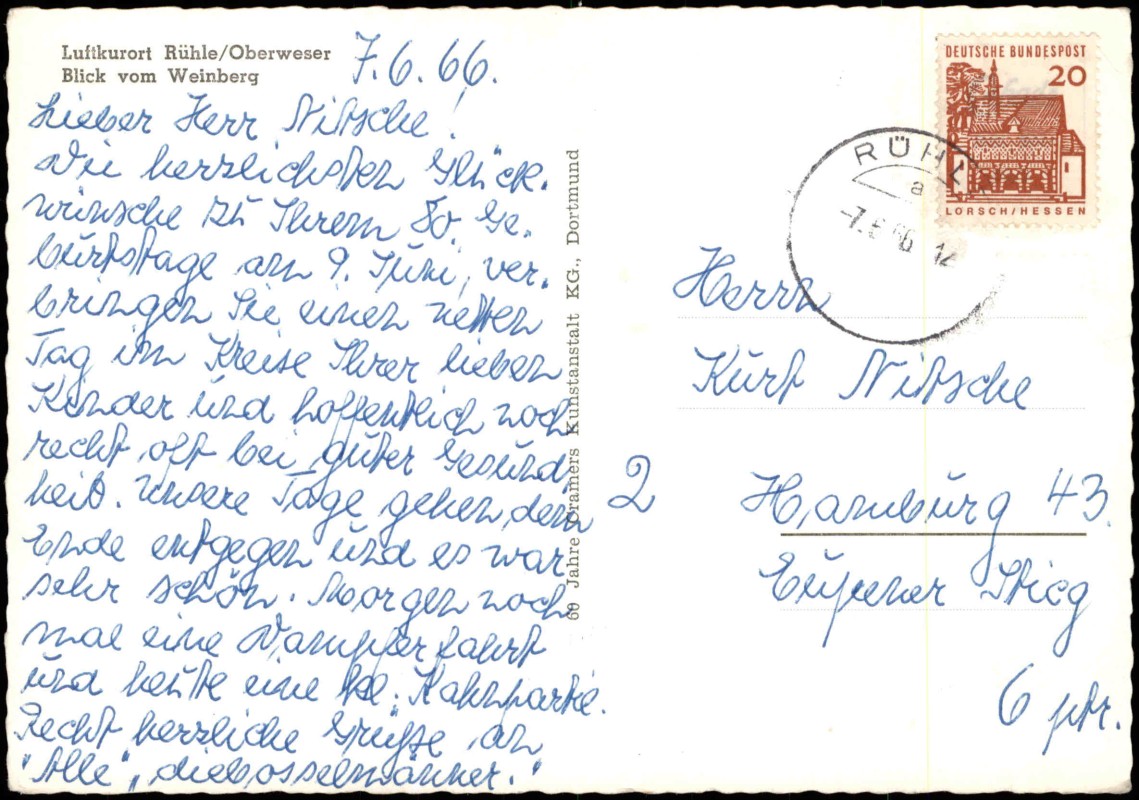 Luftkurort Rühle/Oberweser
Blick vom Weinberg
7.6.66.
Lieber Herr Nitsche!
Die herzlichsten Glück-
wünsche zu Ihrem 80. Ge-
burtstage am 9. Juni, ver-
bringen Sie einen netten
Tag im Kreise Ihrer lieben
Kinder und hoffentlich noch
recht oft bei guter Gesund
heit. Unsere Tage gehen dem
Ende entgegen und es war
sehr schön. Morgen noch
mal eine Dampferfahrt
und heute eine kl. Kahnpartie.
Recht herzliche Grüße an
"Alle", die
60 Jahre Cramers Kunstanstalt KG., Dortmund
DEUTSCHE BUNDESPOST
20
LORSCH/HESSEN
RÜHL
a
-7.6.66-12
Herrn
Kurt Nitsche
2 Hamburg 43.
Eupener Stieg
6 ptr.